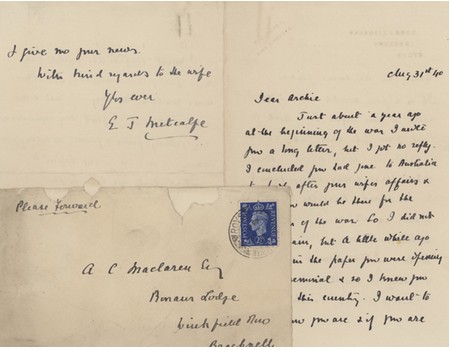 I give me your news.
With kind regards to the wife
Yrs ever
E J Metcalfe
Aug 31st 40
Dear Archie
Just about a year ago
at the beginning of the war I wrote
you a long letter, but I got no reply.
I concluded you had gone to Australia
to look after your wifes affairs &
would be there for the
of the war. So I did not
but a little while ago
in the paper you were opening
& so I knew you
this country. I want to
you are & if you are
Please Forward
A C Maclaren Esq
Lodge
Winkfield Row
Bracknell
POSTAGE
REVENUE